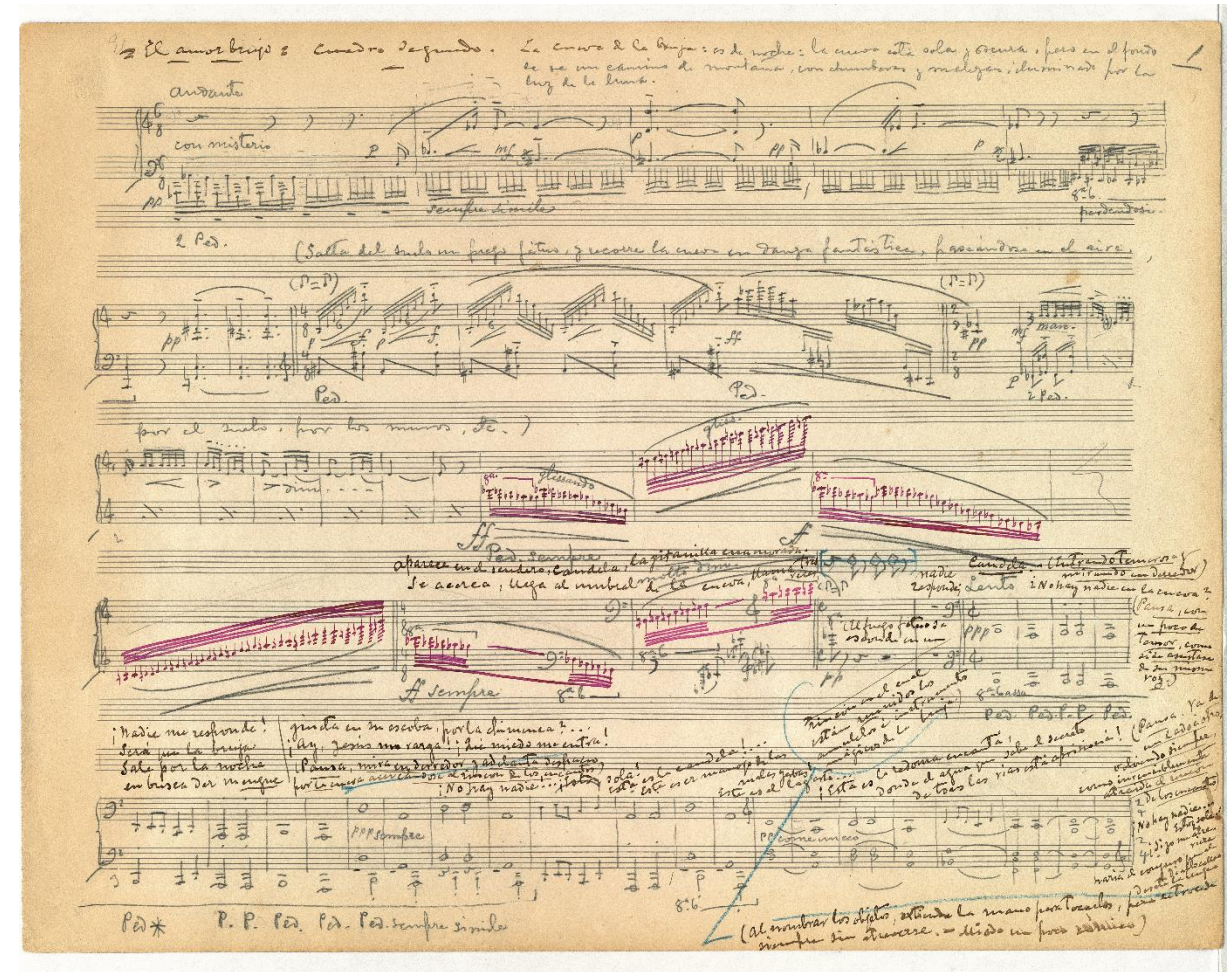 = El amor brujo = Cuadro segundo.
La cueva de la bruja: es de noche: la cueva está sola y oscura, pero en el fondo
se ve un camino de montaña, con chumberas y malezas, iluminado por la
luz de la luna.
1
andante
con misterio
p mf p pp p
pp
sempre simile
8ª b
perdendosi
2 Ped.
(Salta del suelo un fuego fátuo, y recorre la cueva en danza fantástica, paseándose en el aire,
pp p f p f ff pp mf marc.
p
Ped. Ped. 2 Ped.
por el suelo, por los muros, etc.)
gliss.
8ª glissando 8ª
> > > dim. . . .
ff f
Ped. sempre
aparece en el sendero, Candela, la gitanilla enamorada.
Se acerca, llega al umbral de la cueva, llama tres
veces
nadie
responde
Candela (entrando temerosa y
mirando en derredor)
Lento ¡No hay nadie en la cueva?
(Pausa, con
un poco de
temor, como
si se asustase
de su misma
voz.)
(El fuego fatuo se
esconde en un
rincón en el cual
están reunidos los
amuletos é instrumentos
mágicos de la
bruja)
8ª
ff sempre 8ª b pp ppp
8ª bassa
Ped. Ped. P. P. Ped.
¡Nadie me responde!
Será que la bruja
Sale por la noche
en busca der mengue
junta en su escoba, por la chimenea?...
¡Ay, Jesus me varga! ¡Qué miedo me entra!
(Pausa, mira en derredor y adelanta despacio
por la cueva acercándose al rincon de los encantos)
¡No hay nadie... ¡Estoy sola!
Esta es la candela!...
este es er manojo de las
este es el lagarto...
¡Esta es la redoma encanta!
donde el agua que sabe el secreto
de tós los rías está aprisioná!
(Pausa. Va de
un lado a otro
volviendo siempre
como inconscientemente
al rincon
de los encantos
¡No hay nadie...
Estoy sola!
ppp sempre
pp come uneco
8ª b
Ped * P. P. Ped. Ped. Ped. sempre simile
(Al nombrar los objetos, extiende la mano para tocarlos, pero retrocede
siempre sin atreverse. = Miedo un poco cómico)